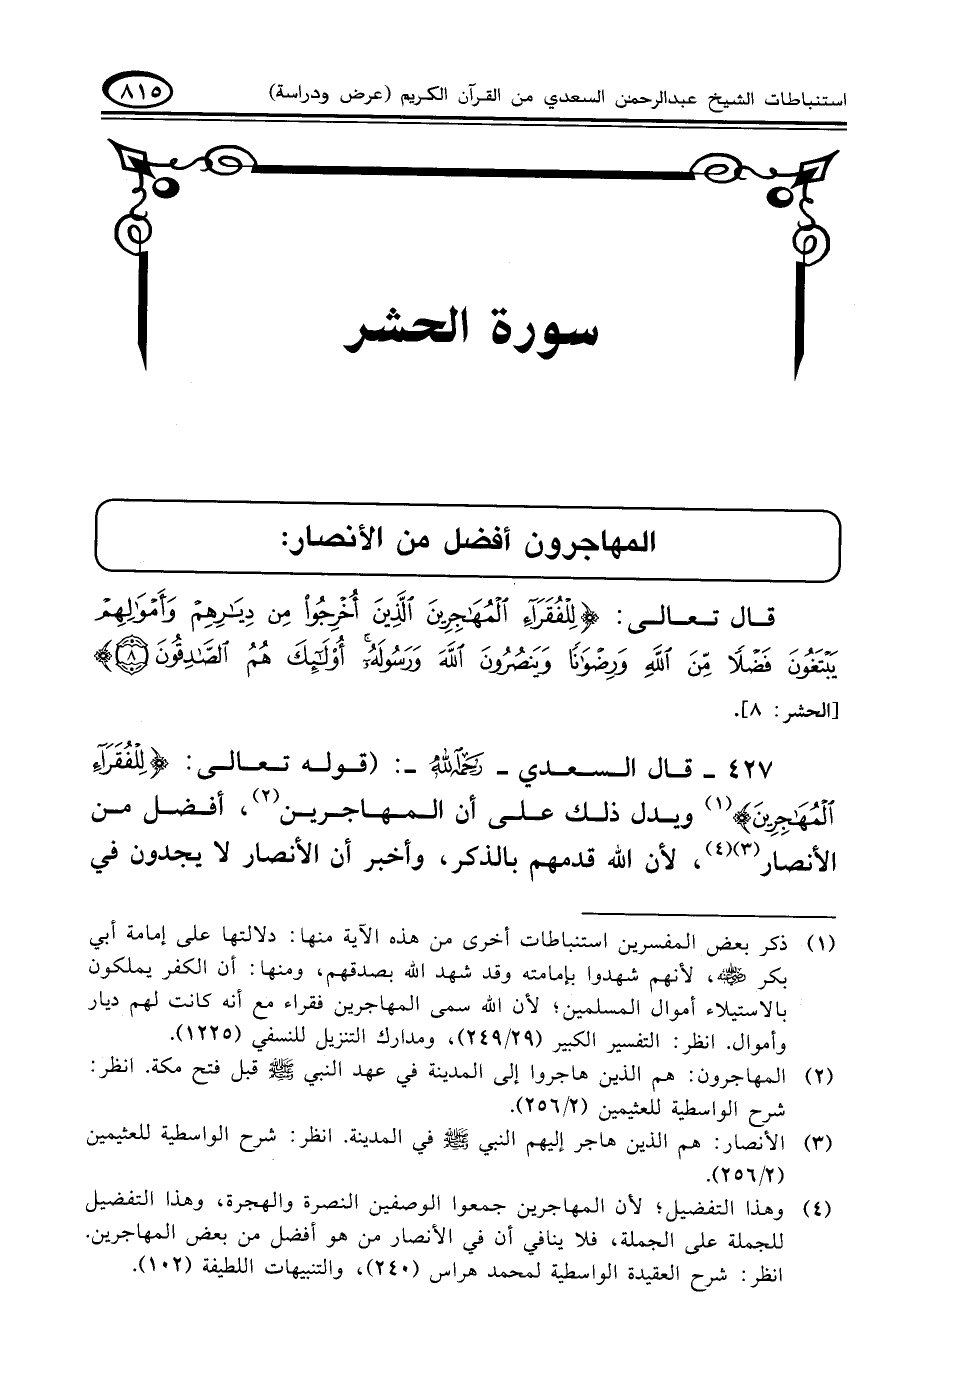 استنباطات الشيخ عبدالرحمن السعدي من القرآن الكريم (عرض ودراسة)
٨١٥
سورة الحشر
المهاجرون أفضل من الأنصار:
قال تعالى: ﴿لِلْفُقَرَآءِ ٱلْمُهَٰجِرِينَ ٱلَّذِينَ أُخْرِجُوا۟ مِن دِيَٰرِهِمْ وَأَمْوَٰلِهِمْ
يَبْتَغُونَ فَضْلًا مِّنَ ٱللَّهِ وَرِضْوَٰنًا وَيَنصُرُونَ ٱللَّهَ وَرَسُولَهُۥٓ ۚ أُو۟لَٰٓئِكَ هُمُ ٱلصَّٰدِقُونَ ٨﴾
[الحشر: ٨].
٤٢٧ ـ قال السعدي ـ رَحِمَهُ اللَّهُ ـ: (قوله تعالى: ﴿لِلْفُقَرَآءِ
ٱلْمُهَٰجِرِينَ﴾(١) ويدل ذلك على أن المهاجرين(٢)، أفضل من
الأنصار(٣)(٤)، لأن الله قدمهم بالذكر، وأخبر أن الأنصار لا يجدون في
(١) ذكر بعض المفسرين استنباطات أخرى من هذه الآية منها: دلالتها على إمامة أبي
بكر رضي الله عنه، لأنهم شهدوا بإمامته وقد شهد الله بصدقهم، ومنها: أن الكفر يملكون
بالاستيلاء أموال المسلمين؛ لأن الله سمى المهاجرين فقراء مع أنه كانت لهم ديار
وأموال. انظر: التفسير الكبير (٢٤٩/٢٩)، ومدارك التنزيل للنسفي (١٢٢٥).
(٢) المهاجرون: هم الذين هاجروا إلى المدينة في عهد النبي ﷺ قبل فتح مكة. انظر:
شرح الواسطية للعثيمين (٢٥٦/٢).
(٣) الأنصار: هم الذين هاجر إليهم النبي ﷺ في المدينة. انظر: شرح الواسطية للعثيمين
(٢٥٦/٢).
(٤) وهذا التفضيل؛ لأن المهاجرين جمعوا الوصفين النصرة والهجرة، وهذا التفضيل
للجملة على الجملة، فلا ينافي أن في الأنصار من هو أفضل من بعض المهاجرين.
انظر: شرح العقيدة الواسطية لمحمد هراس (٢٤٠)، والتنبيهات اللطيفة (١٠٢).